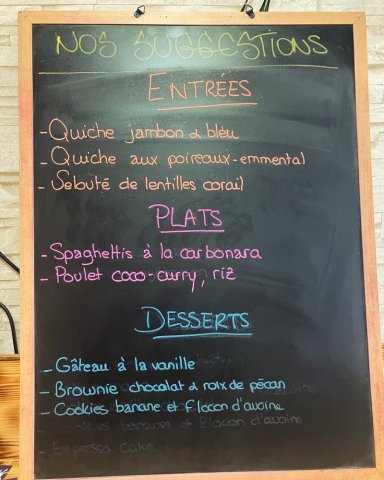 NOS SUGGESTIONS
ENTRÉES
- Quiche jambon & bleu
- Quiche aux poireaux-emmental
- Sebuté de lentilles corail
PLATS
- Spaghettis à la carbonara
- Poulet coco-curry, riz
DESSERTS
- Gâteau à la vanille
- Brownie chocolat & noix de pécan
- Cookies banane et flocon d'avoine
Cookies banane et flocon d'avoine
- Express cake